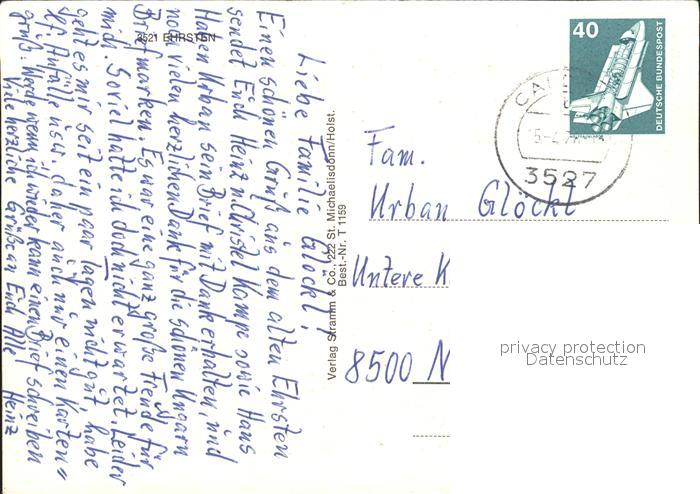 3521 EHRSTEN
Liebe Familie Glöckl!
Einen schönen Gruß aus dem alten Ehrsten
sendet Euch Heinz u. Christel Kampe sowie Hans
Haben Urban sein Brief mit Dank erhalten, und
noch vielen herzlichen Dank für die schönen Ungarn
Briefmarken. Es war eine ganz große Freude für
mich. Soviel hatte ich doch nicht erwartet. Leider
geht es mir seit ein paar Tagen nicht gut, habe
Anfälle usw. daher auch nur einen Karten=
gruß. Werde wenn ich wieder kann einen Brief schreiben
Viele herzliche Grüße an Euch Alle Heinz
Verlag Stramm & Co., 222 St. Michaelisdonn/Holst.
Best.-Nr. T 1159
40
DEUTSCHE BUNDESPOST
3527
Fam.
Urban Glöckl
Untere K
8500 N
privacy protection
Datenschutz